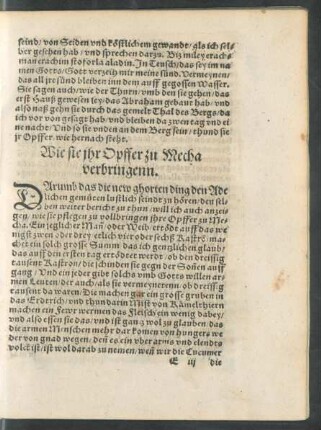 seind/ von Seiden vnd köstlichem gewande/ als ich sel-
ber gesehen hab/ vnd sprechen darzu. Bizmiley erach-
man erachim stoforla aladin. In Teusch/ das sey im na
men Gotts/ Gott verzeih mir meine sünd. Vermeynen/
das all jr sünd bleiben inn dem auff gegossen Wasser.
Sie sagen auch/ wie der Thurn/ vmb den sie gehen/ das
erst Hauß gewesen sey/ das Abraham gebaut hab/ vnd
also naß gehn sie durch das gemelt Thal des Bergs/ da
ich vor von gesagt hab/ vnd bleiben da zwen tag vnd ei
ne nacht/ Vnd so sie vnden an dem Berg sein/ thund sie
jr Opffer/ wie hernach steht.
Wie sie jhr Opffer zu Mecha
verbringenn.
DArumb das die new ghorten ding den Ade
lichen gemüten lustlich seind zu hören/ den sel-
ben weiter bericht zu thun/ will ich auch anzei
gen/ wie sie pflegen zu vollbringen jhre Opffer zu Me-
cha. Ein jeglicher Mañ oder Weib/ ertödt auff das we
nigst zwen oder drey/ etlich vier oder sechß Kastrõ/ ma-
chet ein solch grosse Summ/ das ich gentzlichen glaub/
das auff den ersten tag ertödtet werdt/ ob den dreissig
tausent Kastron/ die scheinden sie gegen der Soñen auff
gang/ Vnd ein jeder gibt solchs vmb Gotts willen ar-
men Leuten/ der auch/ als sie vermeynetenn/ ob dreissig
tausent da waren. Die machen gar ein grosse gruben in
das Erdterich/ vnd thun darin Mist von Kämelthiern
machen ein Fewr/ wermen das Fleisch ein wenig dabey/
vnd also essen sie das/ vnd ist gantz wol zu glauben/ das
die armen Menschen mehr dar komen von hungers we
der von gnad wegen/ deñ es ein vber arms vnd elendes
volck ist/ ist wol darab zu nemen/ weñ wir die Cucumer
E iij die